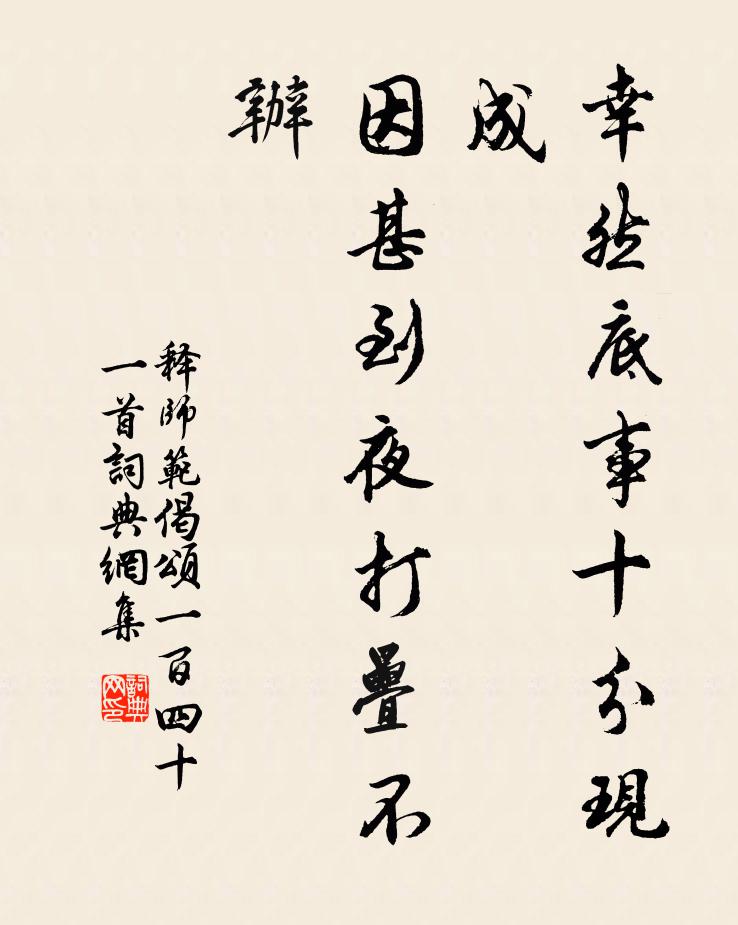 幸然底事十分現
成
因甚到夜打疊不
辦
释師範偈頌一百四十
一首詞典網集
詞典
网印